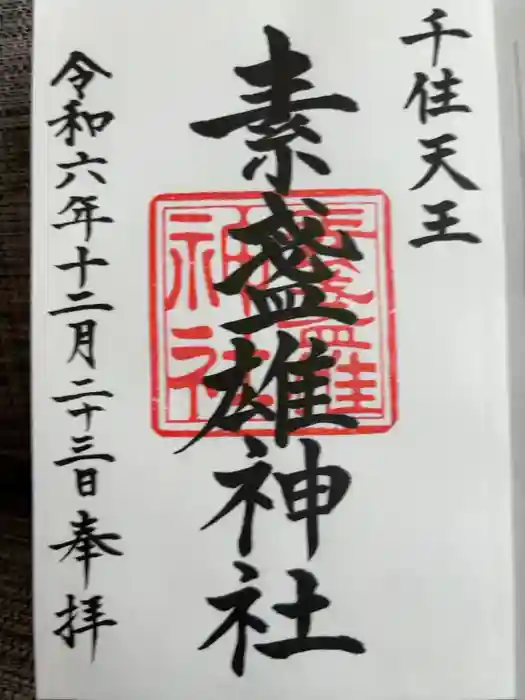 千住天王
素盞雄神社
素盞雄
神社
令和六年十二月二十三日奉拝